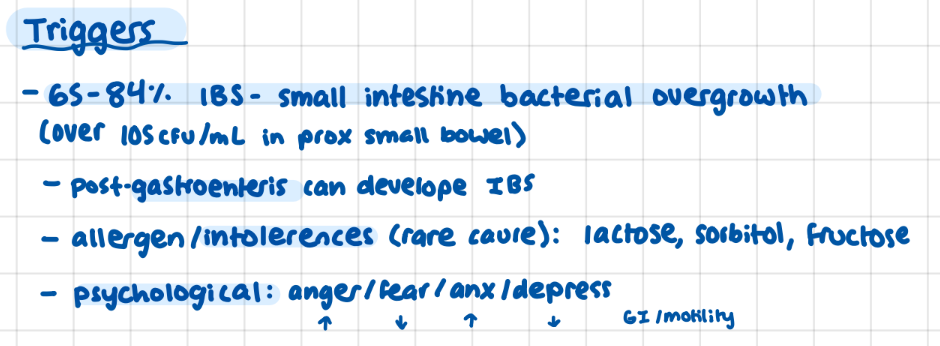 Triggers
- 65-84% IBS - small intestine bacterial overgrowth
(over 105 cfu/mL in prox small bowel)
- post-gastroenteris can develope IBS
- allergen/intolerences (rare caure): lactose, sorbitol, fructose
- psychological: anger/fear/anx/depress
↑ ↓ ↑ ↓ GI/motility